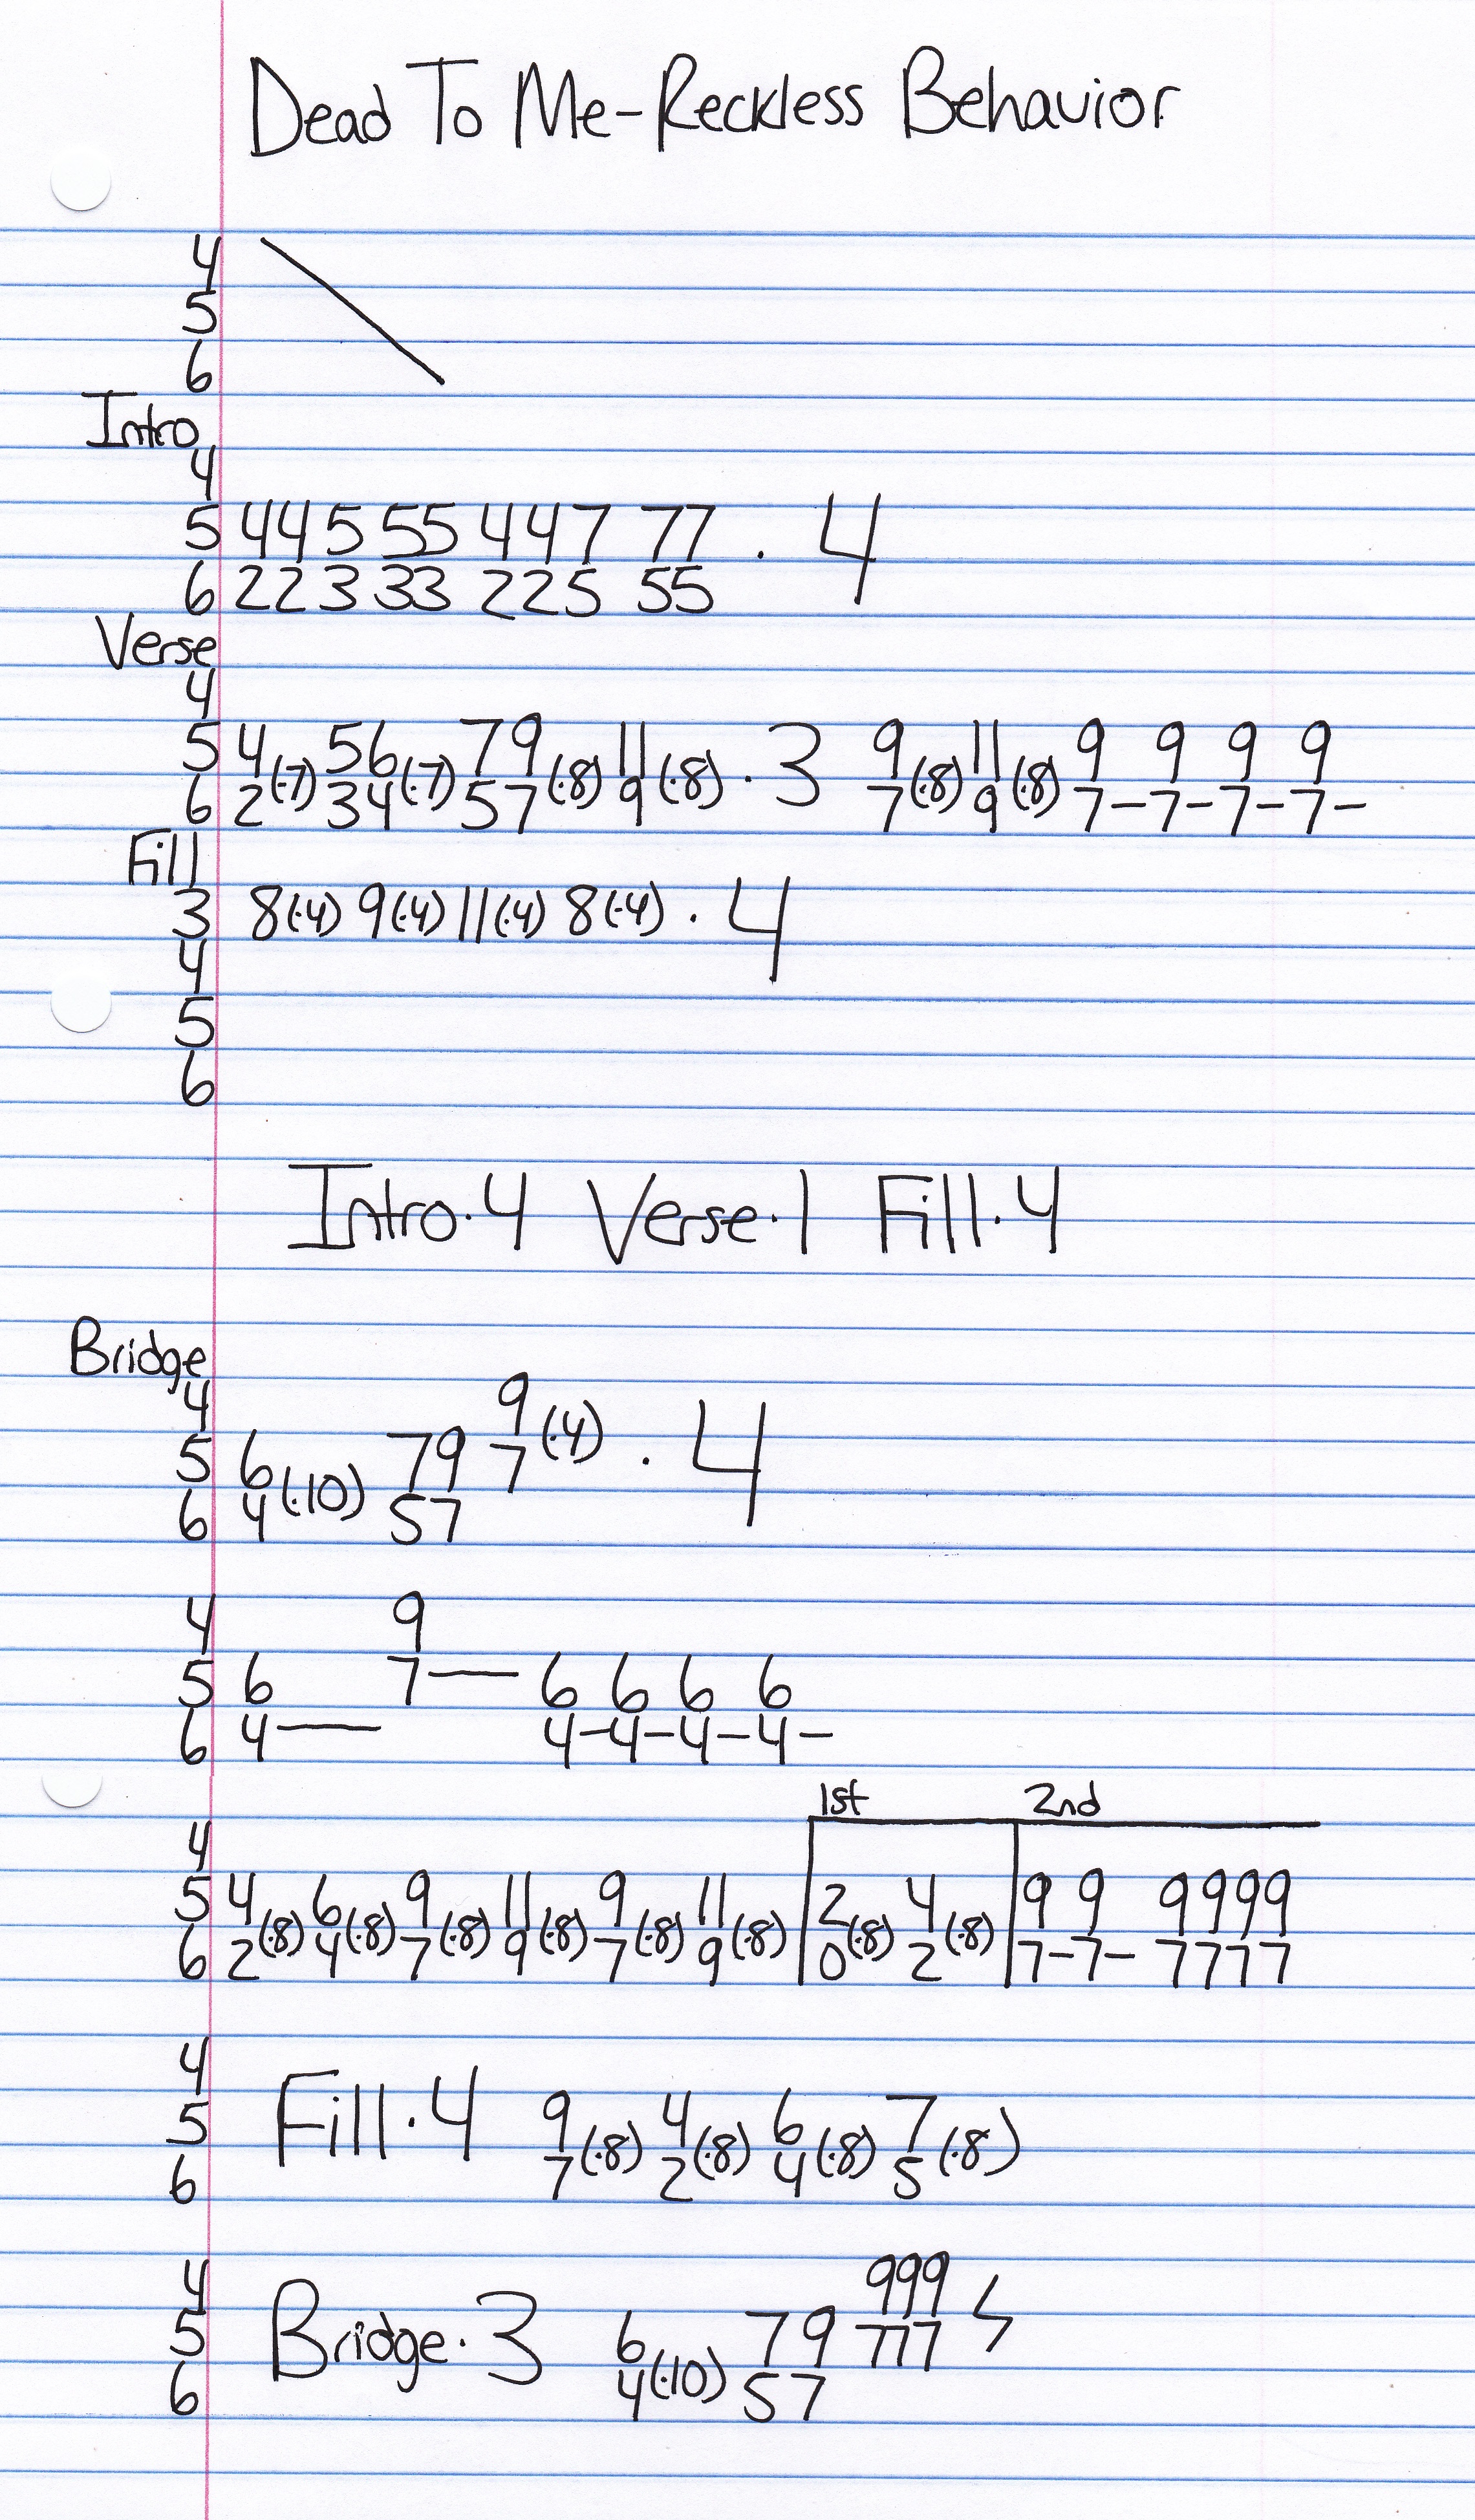 Dead To Me-Reckless Behavior
4
5
6
Intro
4
5 4 4 5 5 5 4 4 7 7 7 · 4
6 2 2 3 3 3 2 2 5 5 5
Verse
4
5 4 (·7) 5 6 (·7) 7 9 (·8) 11 (·8) · 3 9 (·8) 11 (·8) 9 9 9 9
6 2 3 4 5 7 9 7 9 7-7-7-7-
Fill
3 8(·4) 9(·4) 11(·4) 8(·4) · 4
4
5
6
Intro·4 Verse·1 Fill·4
Bridge
4 9 (·4) · 4
5 6 (·10) 7 9 7
6 4 5 7
4 9
5 6 7— 6 6 6 6
6 4— 4-4-4-4-
1st 2nd
4
5 4 (·8) 6 (·8) 9 (·8) 11 (·8) 9 (·8) 11 (·8) 2 (·8) 4 (·8) 9 9 9 9 9 9
6 2 4 7 9 7 9 0 2 7-7- 7 7 7 7
4
5 Fill·4 9 (·8) 4 (·8) 6 (·8) 7 (·8)
6 7 2 4 5
4 9 9 9
5 Bridge·3 6 7 9 7 7 7
6 4(·10) 5 7